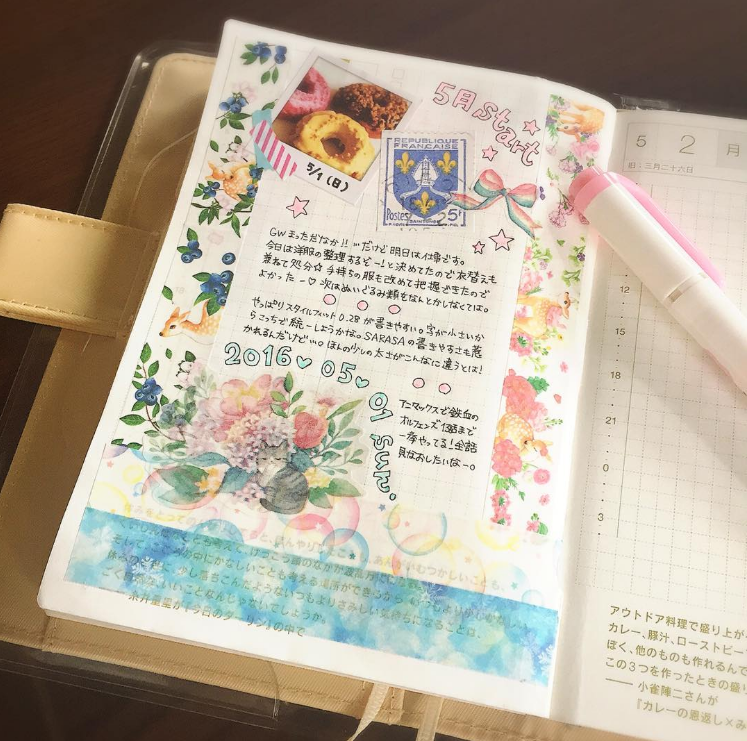 5月start
5/1(日)
REPUBLIQUE
FRANÇAISE
Postes
5F
GWまっただなか!!…だけど明日は仕事です。
今日は洋服の整理するぞー!と決めてたので衣替えも
兼ねて処分☆手持ちの服も改めて把握できたので
よかったー♡次はぬいぐるみ類をなんとかしなくては。
やっぱりスタイルフィット0.28が書きやすい。字が小さいか
らこっちで統一しようかな。SARASAの書きやすさも惹
かれるんだけど…。ほんの少しの太さがこんなに違うとは!
2016♡05♡
01 Sun.
アニマックスで鉄血の
オルフェンズ
一挙やってる!全話
見なおしたいなー。
ほんやりしてると
あんがいむつかしいことも、
ごく自然ないいことなんじゃないでしょうか。
── 糸井重里が『今日のダーリン』の中で
5 2 月
旧:三月二十六日
12
15
18
21
0
3
アウトドア料理で盛り上が
カレー、豚汁、ローストビー
ぼく、他のものも作れるんで
この3つを作ったときの盛
── 小雀陣二さんが
『カレーの恩返し×み